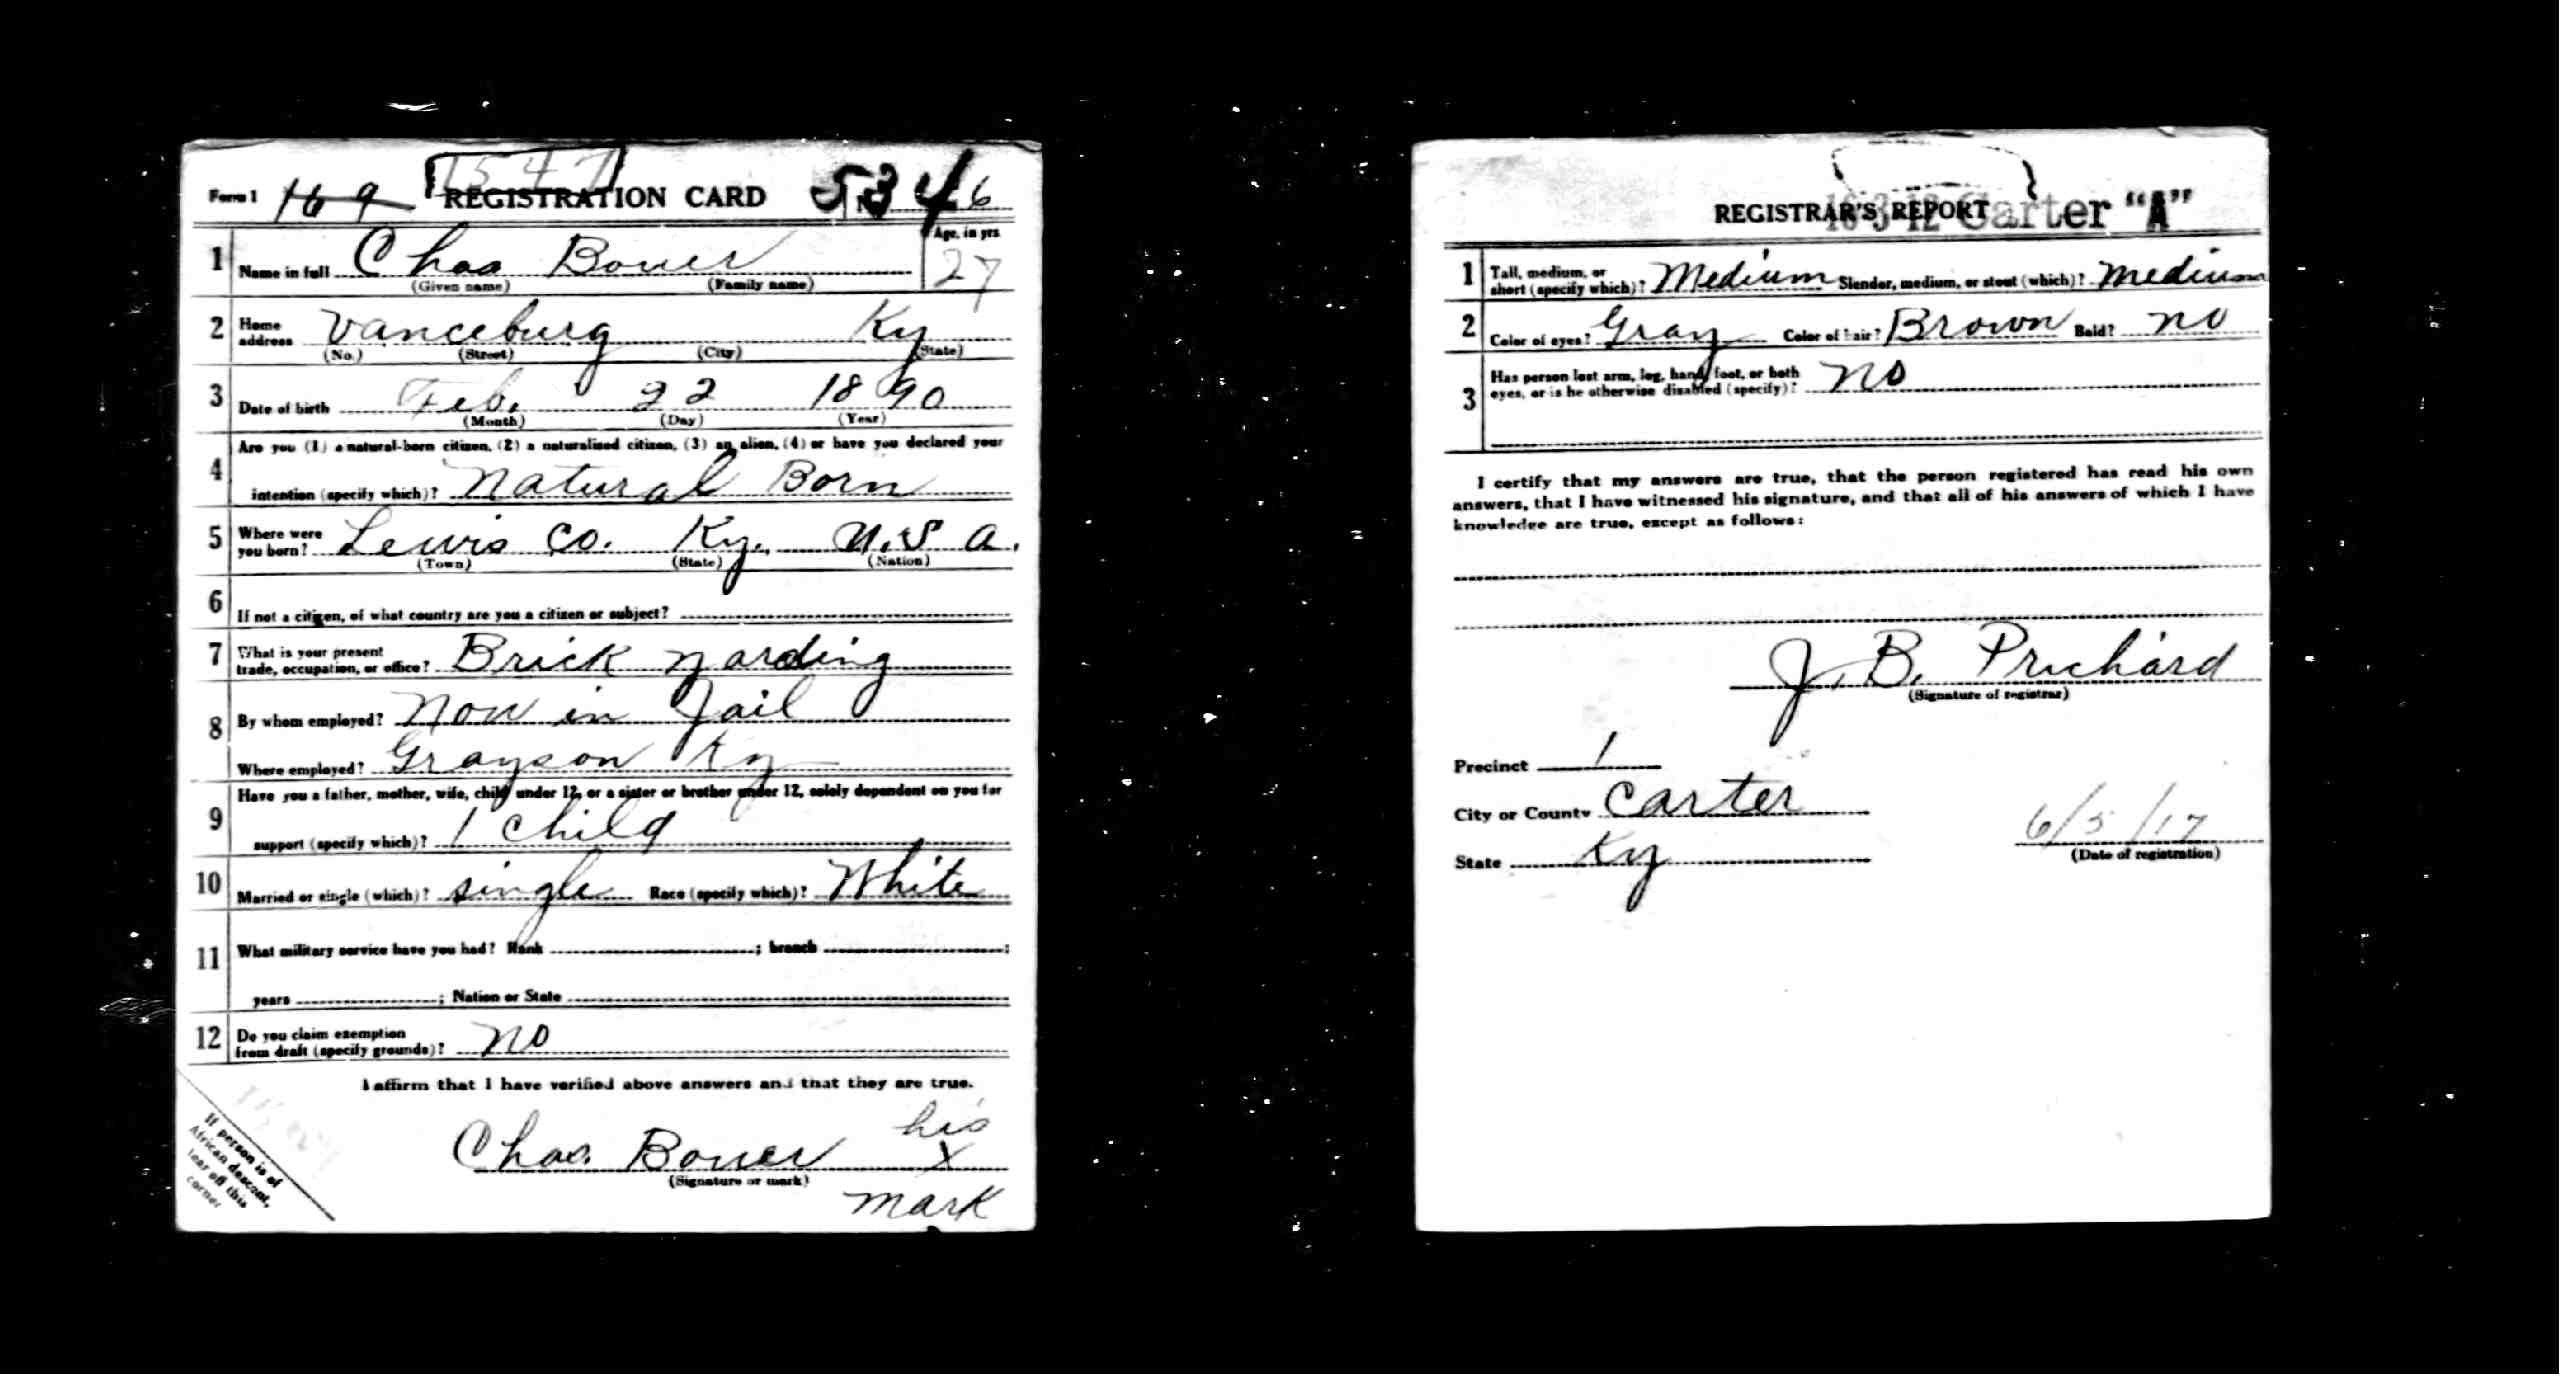 Form 1 169 1547 REGISTRATION CARD 534 No. 46
1 Name in full Chas Boner Age, in yrs 27
(Given name) (Family name)
2 Home address Vanceburg Ky
(No.) (Street) (City) (State)
3 Date of birth Feb. 22 1890
(Month) (Day) (Year)
Are you (1) a natural-born citizen, (2) a naturalized citizen, (3) an alien, (4) or have you declared your
4 intention (specify which)? Natural Born
5 Where were you born? Lewis Co. Ky., U.S A.
(Town) (State) (Nation)
6 If not a citizen, of what country are you a citizen or subject?
7 What is your present trade, occupation, or office? Brick yarding
8 By whom employed? Now in Jail
Where employed? Grayson Ky
Have you a father, mother, wife, child under 12, or a sister or brother under 12, solely dependent on you for
9 support (specify which)? 1 child
10 Married or single (which)? single Race (specify which)? White
11 What military service have you had? Rank ; branch ;
years ; Nation or State
12 Do you claim exemption from draft (specify grounds)? No
I affirm that I have verified above answers and that they are true.
his
Chas. Boner X
(Signature or mark)
mark
If person is of
African descent,
tear off this
corner
REGISTRAR'S REPORT 16-3-12 Carter "A"
1 Tall, medium, or short (specify which)? Medium Slender, medium, or stout (which)? medium
2 Color of eyes? Gray Color of hair? Brown Bald? no
3 Has person lost arm, leg, hand, foot, or both
eyes, or is he otherwise disabled (specify)? no
I certify that my answers are true, that the person registered has read his own
answers, that I have witnessed his signature, and that all of his answers of which I have
knowledge are true, except as follows:
J. B. Prichard
(Signature of registrar)
Precinct 1
City or County Carter
6/5/17
State Ky (Date of registration)